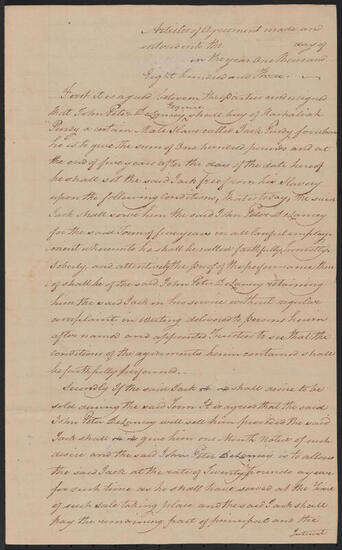 Articles of Agreement made and
entered into the day of
in the year One thousand
Eight hundred and Three.
First it is agreed between the parties undersigned
that John Peter DeLancey Esquire shall buy of Hachaliah
Purdy a certain Male Slave called Jack Purdy for whom
he is to give the sum of One hundred pounds and at
the end of five years after the day of the date hereof
he shall set the said Jack Free from his Slavery
upon the following conditions, that is to say, the said
Jack shall serve him the said John Peter DeLancey
for the said Term of five years in all lawful employ-
ment whereunto he shall be called faithfully, honestly
Soberly and attentively the proof of the performance there
of shall be of the said John Peter DeLancey retaining
him the said Jack in his service without regular
complaint in writing delivered to persons herein
after named and appointed Trustees to see that the
conditions of the agreements herein contained shall
be faithfully performed.
Secondly If the said Jack shall desire to be
sold during the said Term It is agreed that the said
John Peter DeLancey will sell him provided the said
Jack shall give him one Month Notice of such
desire and the said John Peter DeLancey is to allow
the said Jack at the rate of Twenty pounds a year
for such time as he shall have served at the Time
of such sale taking place and the said Jack shall
pay the remaining part of principal and the
Interest